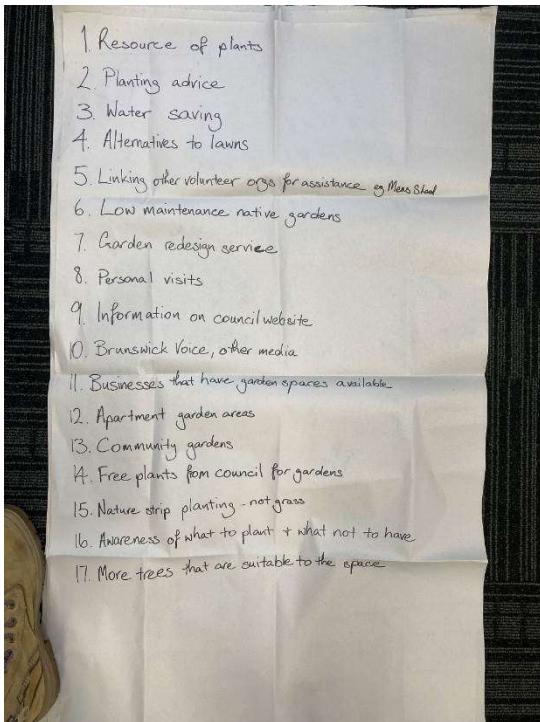 1. Resource of plants
2. Planting advice
3. Water saving
4. Alternatives to lawns
5. Linking other volunteer orgs for assistance eg Mens Shed
6. Low maintenance native gardens
7. Garden redesign service
8. Personal visits
9. Information on council website
10. Brunswick Voice, other media
11. Businesses that have garden spaces available
12. Apartment garden areas
13. Community gardens
14. Free plants from council for gardens
15. Nature strip planting - not grass
16. Awareness of what to plant + what not to have
17. More trees that are suitable to the space